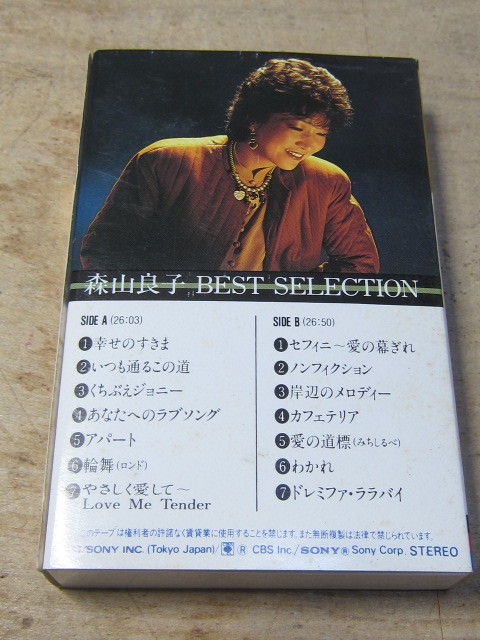 森山良子 BEST SELECTION
SIDE A (26:03)
❶幸せのすきま
❷いつも通るこの道
❸くちぶえジョニー
❹あなたへのラブソング
❺アパート
❻輪舞(ロンド)
❼やさしく愛して〜
Love Me Tender
SIDE B (26:50)
❶セフィニ〜愛の幕ぎれ
❷ノンフィクション
❸岸辺のメロディー
❹カフェテリア
❺愛の道標(みちしるべ)
❻わかれ
❼ドレミファ・ララバイ
このテープは権利者の許諾なく賃貸業に使用することを禁じます。また無断複製は法律で禁じられています。
/SONY INC. (Tokyo Japan)/ ® CBS Inc./SONY® Sony Corp. STEREO